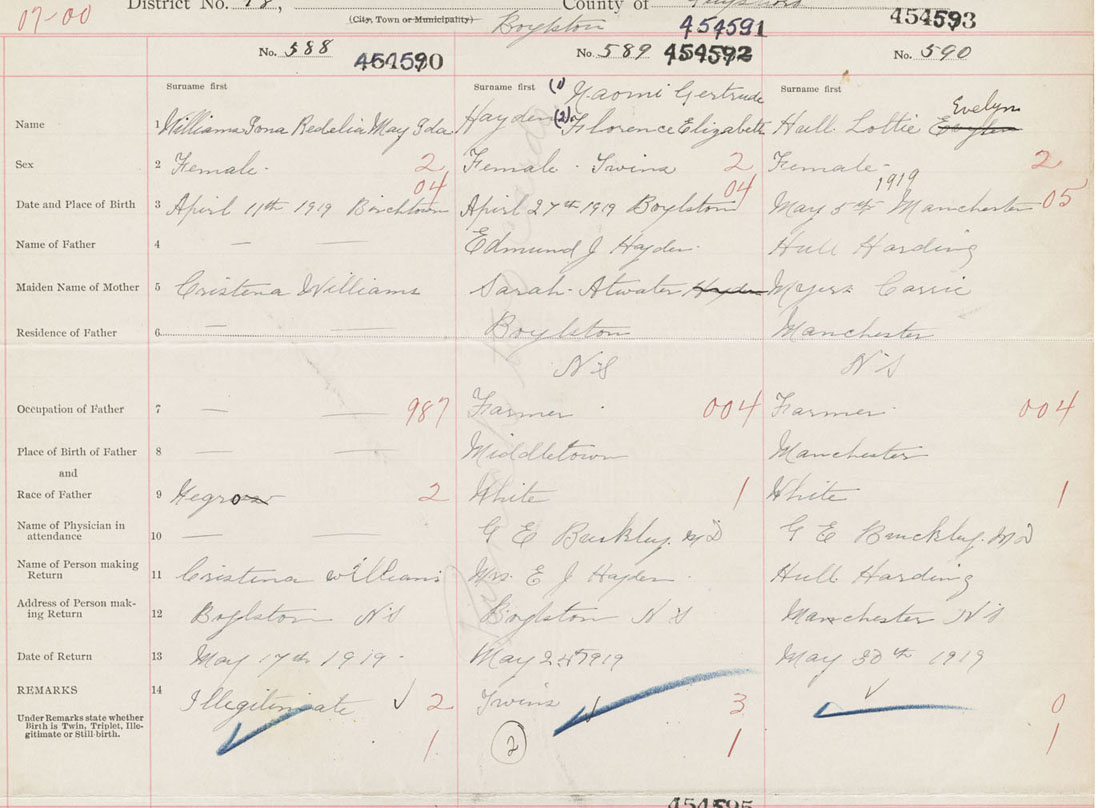 07-00 District No. 18, (City, Town or Municipality) Boylston County of
454591 454593
No. 588 454590 No. 589 454592 No. 590
Surname first Surname first Surname first
(1) Naomi Gertrude
Evelyn
Name 1 Williams Iona Redelia May Ida Hayden (2) Florence Elizabeth Hull Lottie
Sex 2 Female. 2 Female. Twins 2 Female. 2
04 04 1919
Date and Place of Birth 3 April 11th 1919 Birchtown April 27th 1919 Boylston May 5th Manchester 05
Name of Father 4 — — Edmund J Hayden. Hull Harding
Maiden Name of Mother 5 Cristena Williams Sarah Atwater Hayden Myers Carrie
Residence of Father 6 — — Boylston Manchester
N S N S
Occupation of Father 7 — — 987 Farmer 004 Farmer 004
Place of Birth of Father 8 — — Middletown Manchester
and
Race of Father 9 Negro 2 White 1 White 1
Name of Physician in
attendance 10 — — G E Buckley. M D G E Buckley. M D
Name of Person making
Return 11 Cristena Williams Mrs. E J Hayden. Hull Harding
Address of Person mak-
ing Return 12 Boylston N S Boylston N S Manchester N S
Date of Return 13 May 17th 1919. May 24 1919 May 30th 1919
REMARKS 14 Illegitimate ✓ 2 Twins ✓ 3 ✓ 0
Under Remarks state whether
Birth is Twin, Triplet, Ille-
gitimate or Still-birth. 1 (2) 1 1
454595